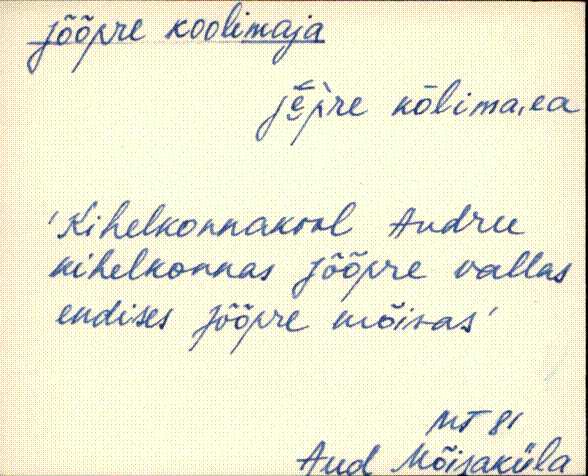 jõõpre koolimaja
jɛ̮̄̀pre kōlima.ea
'Kihelkonnakool Audru
kihelkonnas jõõpre vallas
endises jõõpre mõisas'
MT 81
Aud Mõisaküla